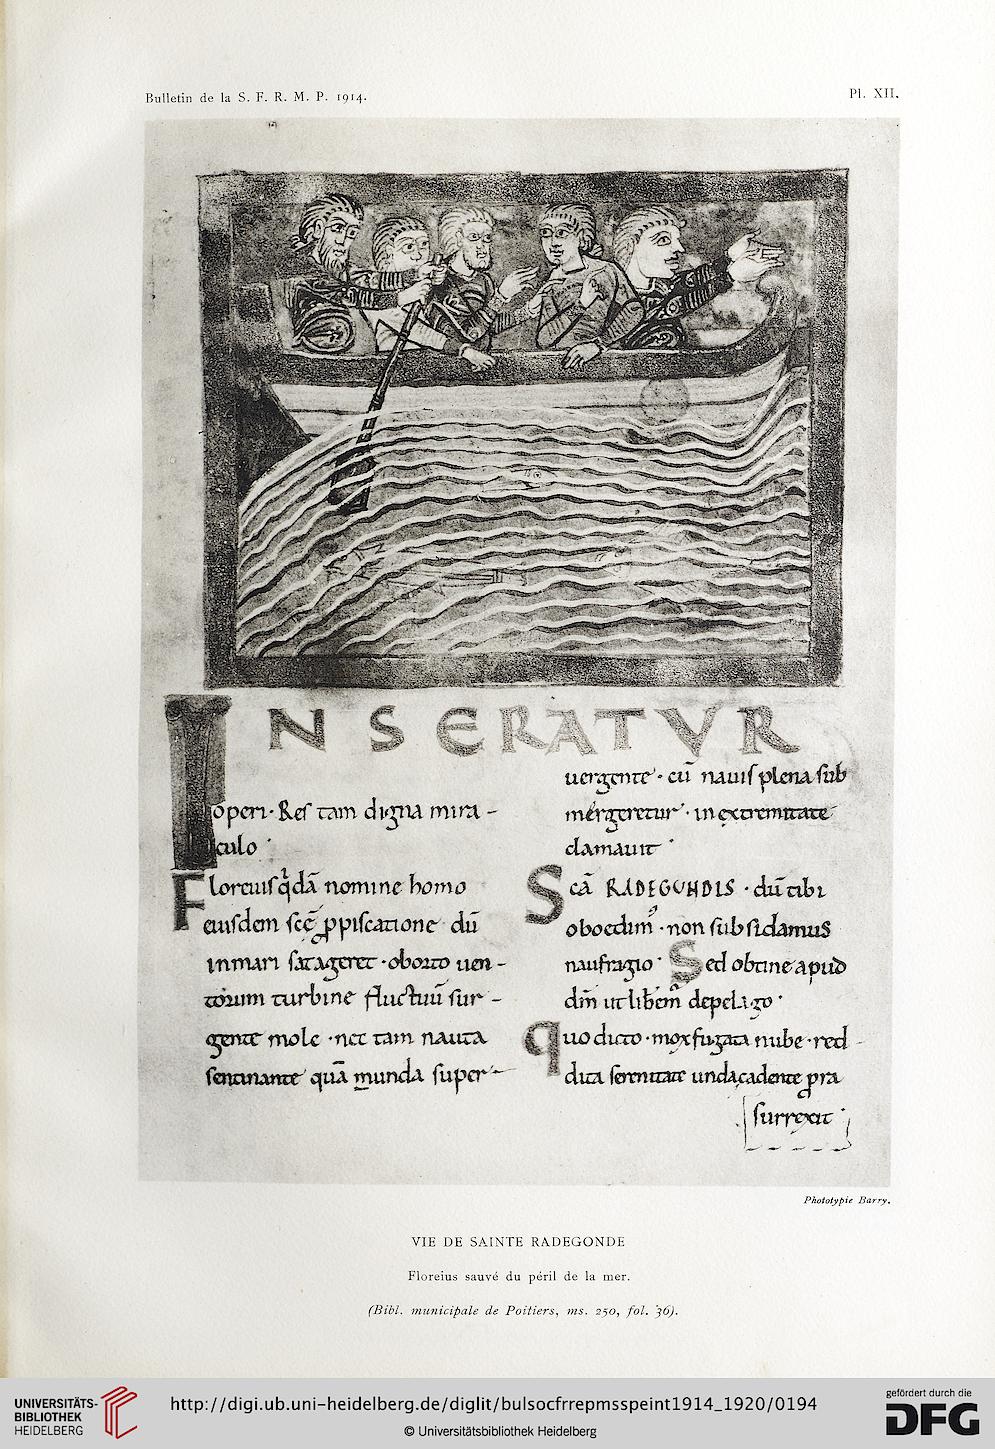 Bulletin de la S. F. R. M. P. 1914.
Pl. XII.
INSERATVR
operi · Res tam digna mira-
culo ·
Floreius q̇dā nomine homo
eiusdem scē ꝓpiscatione dū
inmari satageret · oborto uen-
torum turbine fluctuū sur-
gente mole · nec tam nauta
sentinante quā munda super-
uergente · cū nauis plena sub
mergeretur · in extremitate
clamauit ·
Scā RADEGUNDIS · dū tibi
oboedim᾿ · non subsidamus
naufragio · Sed obtine apud
dm̄ ut liberem̄ depelago ·
quo dicto · mox fugata nube · red-
dita serenitate unda cadente ꝓra
surrexit ·
Phototypie Barry.
VIE DE SAINTE RADEGONDE
Floreius sauvé du péril de la mer.
(Bibl. municipale de Poitiers, ms. 250, fol. 36).
UNIVERSITÄTS-
BIBLIOTHEK
HEIDELBERG
http://digi.ub.uni-heidelberg.de/diglit/bulsocfrrepmsspeint1914_1920/0194
© Universitätsbibliothek Heidelberg
gefördert durch die
DFG